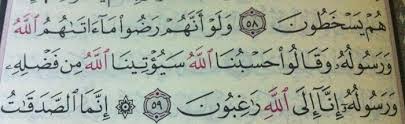 هُمْ يَسْخَطُونَ ٥٨ وَلَوْ أَنَّهُمْ رَضُوا۟ مَآ ءَاتَىٰهُمُ ٱللَّهُ
وَرَسُولُهُۥ وَقَالُوا۟ حَسْبُنَا ٱللَّهُ سَيُؤْتِينَا ٱللَّهُ مِن فَضْلِهِۦ
وَرَسُولُهُۥٓ إِنَّآ إِلَى ٱللَّهِ رَٰغِبُونَ ٥٩ ۞ إِنَّمَا ٱلصَّدَقَٰتُ